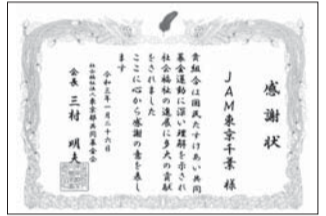 感謝状
JAM東京千葉 様
貴組合は国民たすけあい共同
募金運動に深い理解を示され
社会福祉の進展に多大の貢献
をされました
ここに心から感謝の意を表し
ます
令和三年一月二十六日
社会福祉法人東京都共同募金会
会長 三村 明夫